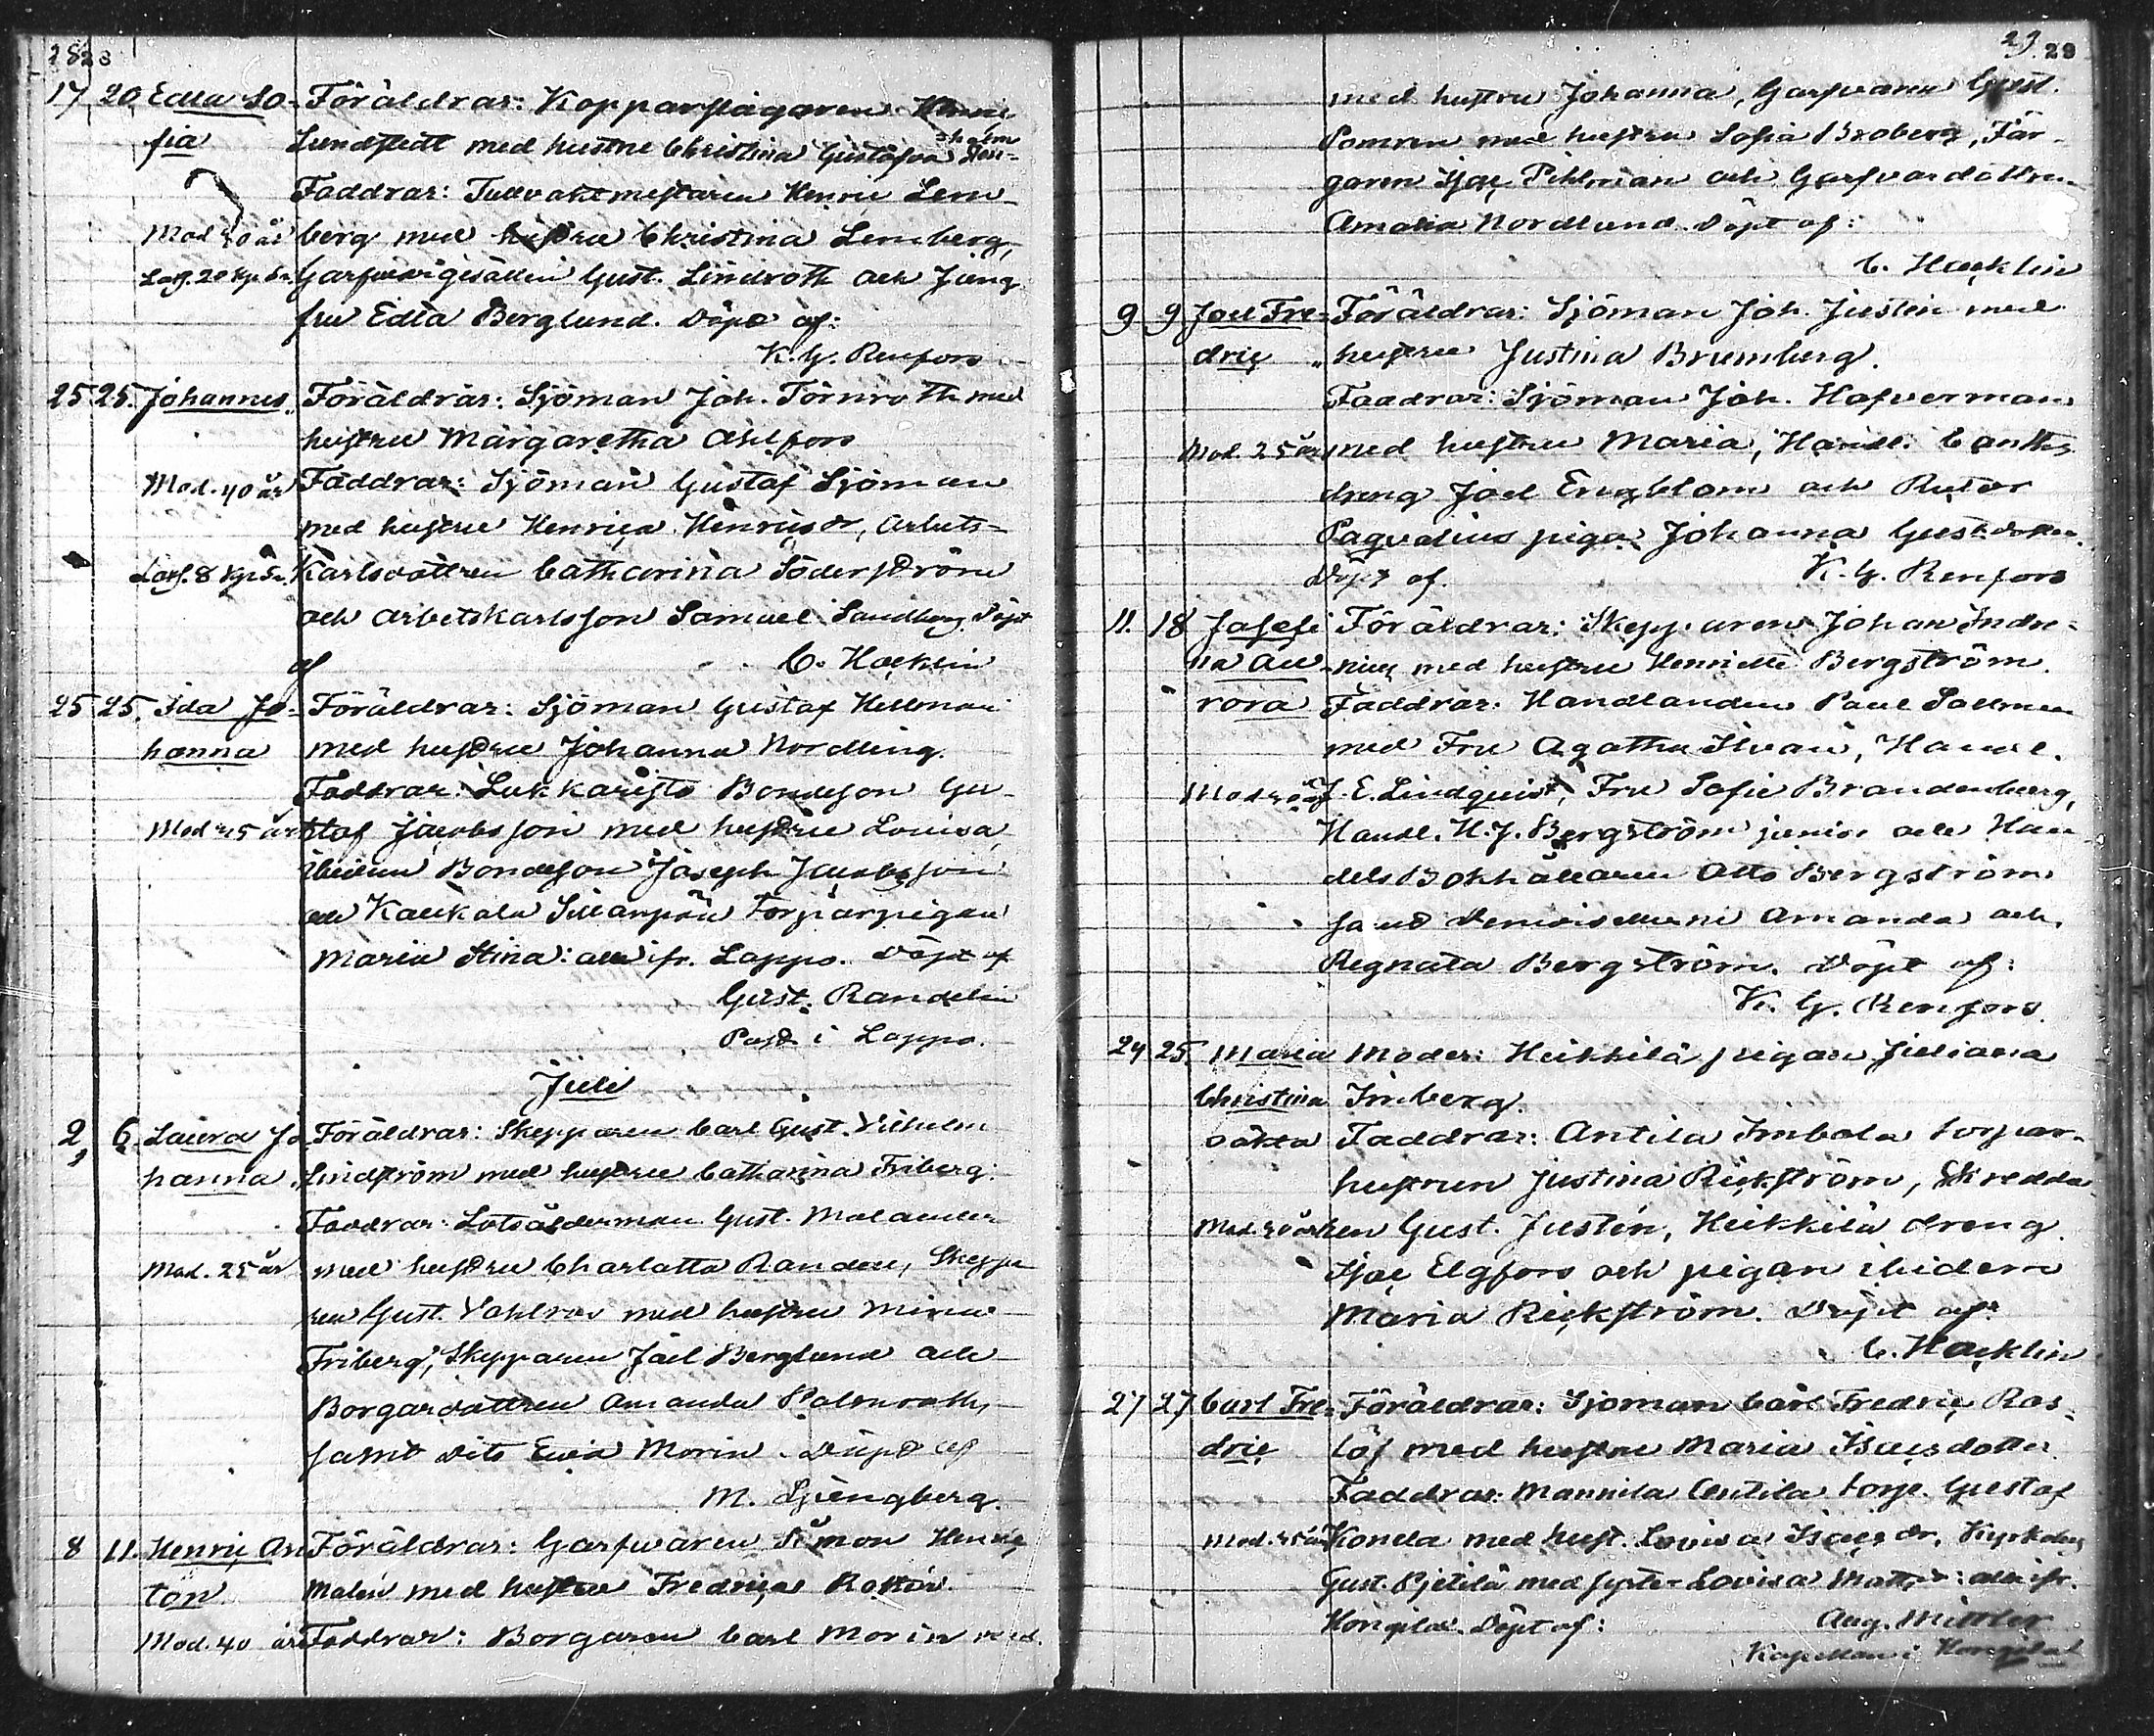 28 28
17 20 Edla So- Föräldrar: Kopparslagaren
fia Lundstedt med hustru Christina Gustafva
holm
Faddrar: Tullvaktmestaren Henric Lem-
Mod 30 år berg med hustru Christina Lemberg,
Garfvarigesällen Gust. Lindroth och Jung
fru Edla Berglund. Döpt af:
K. G. Renfors
25 25. Johannes Föräldrar: Sjöman Joh. Törnroth med
hustru Margaretha Ahlfors
Mod. 40 år Faddrar: Sjöman Gustaf Sjöman
med hustru Henrica Henricsdr, Arbets-
Karlsdottren Catharina Söderström
och arbetskarlsson Samuel Sandberg. Döpt
af C. Hacklin
25 25. Ida Jo- Föräldrar: Sjöman Gustaf Hellman
hanna med hustru Johanna Nordling.
Faddrar: Lukkaristo Bondeson Gu-
Mod 25 år staf Jacobsson med hustru Lovisa,
ibidem Bondeson Joseph Jacobsson
och Kaukola Sillanpää Torparpigan
Maria Stina: alla ifr. Lappo. Döpt af
Gust. Randelin
Past i Lappo.
Juli
2 6. Laura Jo Föräldrar: Skepparen Carl Gust. Vilhelm
hanna Lindström med hustru Catharina Friberg.
Faddrar: Lotsålderman Gust. Malander
Mod. 25 år med hustru Charlotta Randen, Skeppa
ren Gust. Vahlroos med hustru Mina
Friberg, Skepparen Joel Berglund och
Borgardottren Amanda Palmroth,
samt dito Eva Morin. Döpt af
M. Ljungberg.
8 11. Henric An Föräldrar: Garfvaren Simon Henric
ton Malén med hustru Fredrica
Mod. 40 år Faddrar: Borgaren Carl Morin med
29. 29
med hustru Johanna, Garfvaren Gust.
med hustru Sofia Broberg, Fär-
garen Isac Pihlman och Garfvardottren
Amalia Nordlund. Döpt af:
C. Hacklin
9 9 Joel Fre- Föräldrar: Sjöman Joh. Justén med
dric hustru Justina Brumberg.
Faddrar: Sjöman Joh. Hafverman
Mod. 25 år med hustru Maria, Handl.
dreng Joel Engblom och
piga Johanna Gust.dotter.
Döpt af. K. G. Renfors
11. 18 Josefi Föräldrar: Skepparen Johan Indre-
na Au- nius med hustru Henriette Bergström.
rora Faddrar: Handlanden Paul Sallmén
med Fru Agatha Ilvan, Handl.
J. E. Lindquist, Fru Sofie Brandenburg,
Handl. H. J. Bergström junior och Han
dels Bokhållaren Otto Bergström
samt Demoisellerne Amanda och
Regnata Bergström. Döpt af:
K. G. Renfors.
24 25. Maria Moder: Heikkilä pigan Juliana
Christina Imberg.
oäkta Faddrar: Antila Imbola torpar-
hustrun Justina Rickström, Skredda-
ren Gust. Justén, Heikkilä dreng
Isac Elgfors och pigan ibidem
Maria Rickström. Döpt af:
C. Hacklin
27 27 Carl Fre- Föräldrar: Sjöman Carl Fredric Ros-
dric löf med hustru Maria Isacsdotter
Faddrar: Mannila Centila torp. Gustaf
Konda med hust. Lovisa Isacsdr,
Gust. Pjetilä med syster Lovisa Mattsdr: alla ifr.
Hongilax. Döpt af: Aug. Mittler
Kapellan i